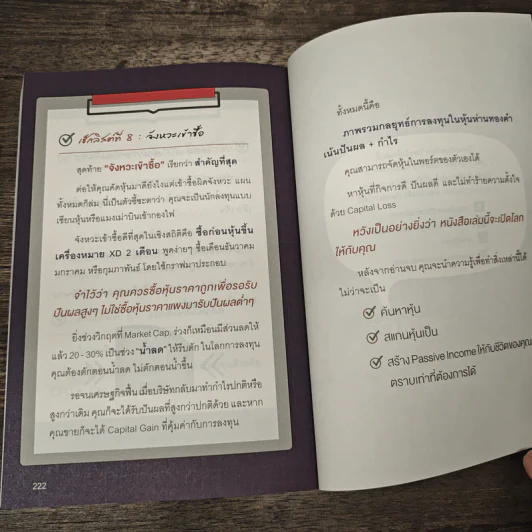 เช็กลิสต์ที่ 8 : จังหวะเข้าซื้อ
สุดท้าย "จังหวะเข้าซื้อ" เรียกว่า สำคัญที่สุด
ต่อให้คุณคัดหุ้นมาดียังไงแต่เข้าซื้อผิดจังหวะ แผน
ทั้งหมดก็ล่ม นี่เป็นตัวชี้ชะตาว่า คุณจะเป็นนักลงทุนแบบ
เซียนหุ้นหรือแมงเม่าบินเข้ากองไฟ
จังหวะเข้าซื้อดีที่สุดในเชิงสถิติคือ ซื้อก่อนหุ้นขึ้น
เครื่องหมาย XD 2 เดือน พูดง่ายๆ ซื้อเดือนธันวาคม
มกราคม หรือกุมภาพันธ์ โดยใช้กราฟมาประกอบ
จำไว้ว่า คุณควรซื้อหุ้นราคาถูกเพื่อรอรับ
ปันผลสูงๆ ไม่ใช่ซื้อหุ้นราคาแพงมารับปันผลต่ำๆ
ยิ่งช่วงวิกฤตที่ Market Cap. ร่วงก็เหมือนมีส่วนลดให้
แล้ว 20 - 30% เป็นช่วง "น้ำลด" ให้รีบตัก ในโลกการลงทุน
คุณต้องตักตอนน้ำลด ไม่ตักตอนน้ำขึ้น
รอจนเศรษฐกิจฟื้น เมื่อบริษัทกลับมาทำกำไรปกติหรือ
สูงกว่าเดิม คุณก็จะได้รับปันผลที่สูงกว่าปกติด้วย และหาก
คุณขายก็จะได้ Capital Gain ที่คุ้มค่ากับการลงทุน
222
ทั้งหมดนี้คือ
ภาพรวมกลยุทธ์การลงทุนในหุ้นห่านทองคำ
เน้นปันผล + กำไร
คุณสามารถจัดหุ้นในพอร์ตของตัวเองได้
หาหุ้นที่กิจการดี ปันผลดี และไม่ทำร้ายความตั้งใจ
ด้วย Capital Loss
หวังเป็นอย่างยิ่งว่า หนังสือเล่มนี้จะเปิดโลก
ให้กับคุณ
หลังจากอ่านจบ คุณจะนำความรู้เพื่อทำสิ่งเหล่านี้ได้
ไม่ว่าจะเป็น
ค้นหาหุ้น
สแกนหุ้นเป็น
สร้าง Passive Income ให้กับชีวิตของคุณ
ตราบเท่าที่ต้องการได้